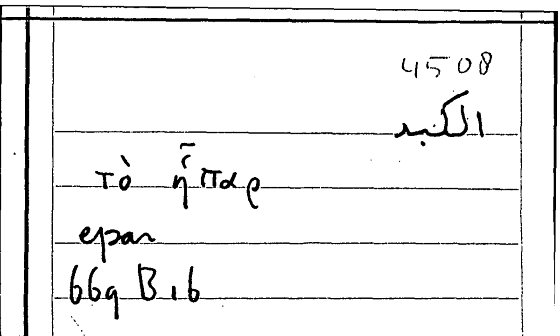 4508
الكبد
τὸ ἧπαρ
epar
669 B 16